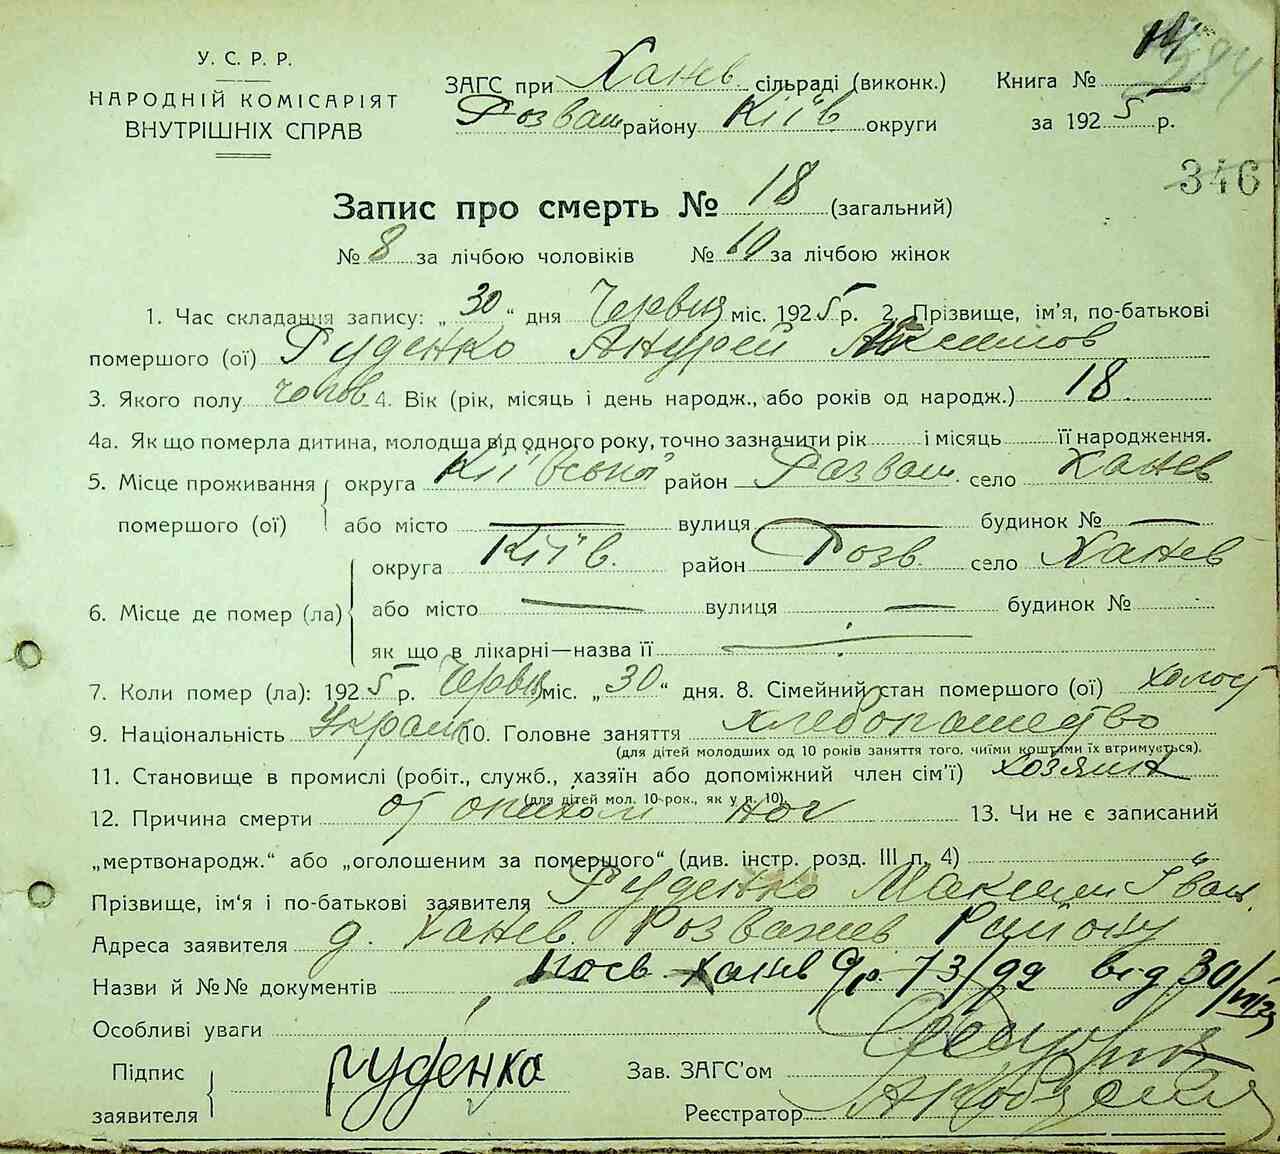 У. С. Р. Р.
НАРОДНІЙ КОМІСАРІЯТ
ВНУТРІШНІХ СПРАВ
ЗАГС при Ханев. сільраді (виконк.)
Розваж району Київ. округи
Книга №
за 1925 р.
346
Запис про смерть № 18 (загальний)
№ 8 за лічбою чоловіків № 10 за лічбою жінок
1. Час складання запису: „30“ дня Червня міс. 1925 р. 2. Прізвище, ім'я, по-батькові
помершого (ої) Руденко Андрей Максимов
3. Якого полу чолов. 4. Вік (рік, місяць і день народж., або років од народж.) 18.
4а. Як що померла дитина, молодша від одного року, точно зазначити рік і місяць її народження.
5. Місце проживання помершого (ої) округа Київської район Розваж. село Ханев
або місто — вулиця — будинок № —
6. Місце де помер (ла) округа Київ. район Розв. село Ханев
або місто — вулиця — будинок №
як що в лікарні—назва її
7. Коли помер (ла): 1925 р. Червня міс. „30“ дня. 8. Сімейний стан помершого (ої) холост
9. Національність Украин 10. Головне заняття хлебопашество
(для дітей молодших од 10 років заняття того, чиїми коштами їх втримується).
11. Становище в промислі (робіт., служб., хазяїн або допоміжний член сім'ї) хозяин
(для дітей мол. 10-рок., як у п. 10).
12. Причина смерти от ног 13. Чи не є записаний
„мертвонародж.“ або „оголошеним за померщого“ (див. інстр. розд. III п. 4)
Прізвище, ім'я і по-батькові заявителя Руденко Максим Іван
Адреса заявителя д. Ханев Розважев Району
Назви й №№ документів посв. Ханев 73/92 від 30/VI/25
Особливі уваги
Підпис заявителя Руденко
Зав. ЗАГС'ом
Реєстратор